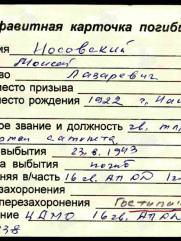 фавитная карточка погибш
ия Носовский
Моисей
во Лазаревич
место призыва
место рождения 1922 г.
ное звание и должность гв.
самолета
выбытия 23.8.1943
а выбытия погиб
няя в/часть 16 гв. АП ДД
захоронения
перезахоронения
ЦАМО 16 гв. АП ДД